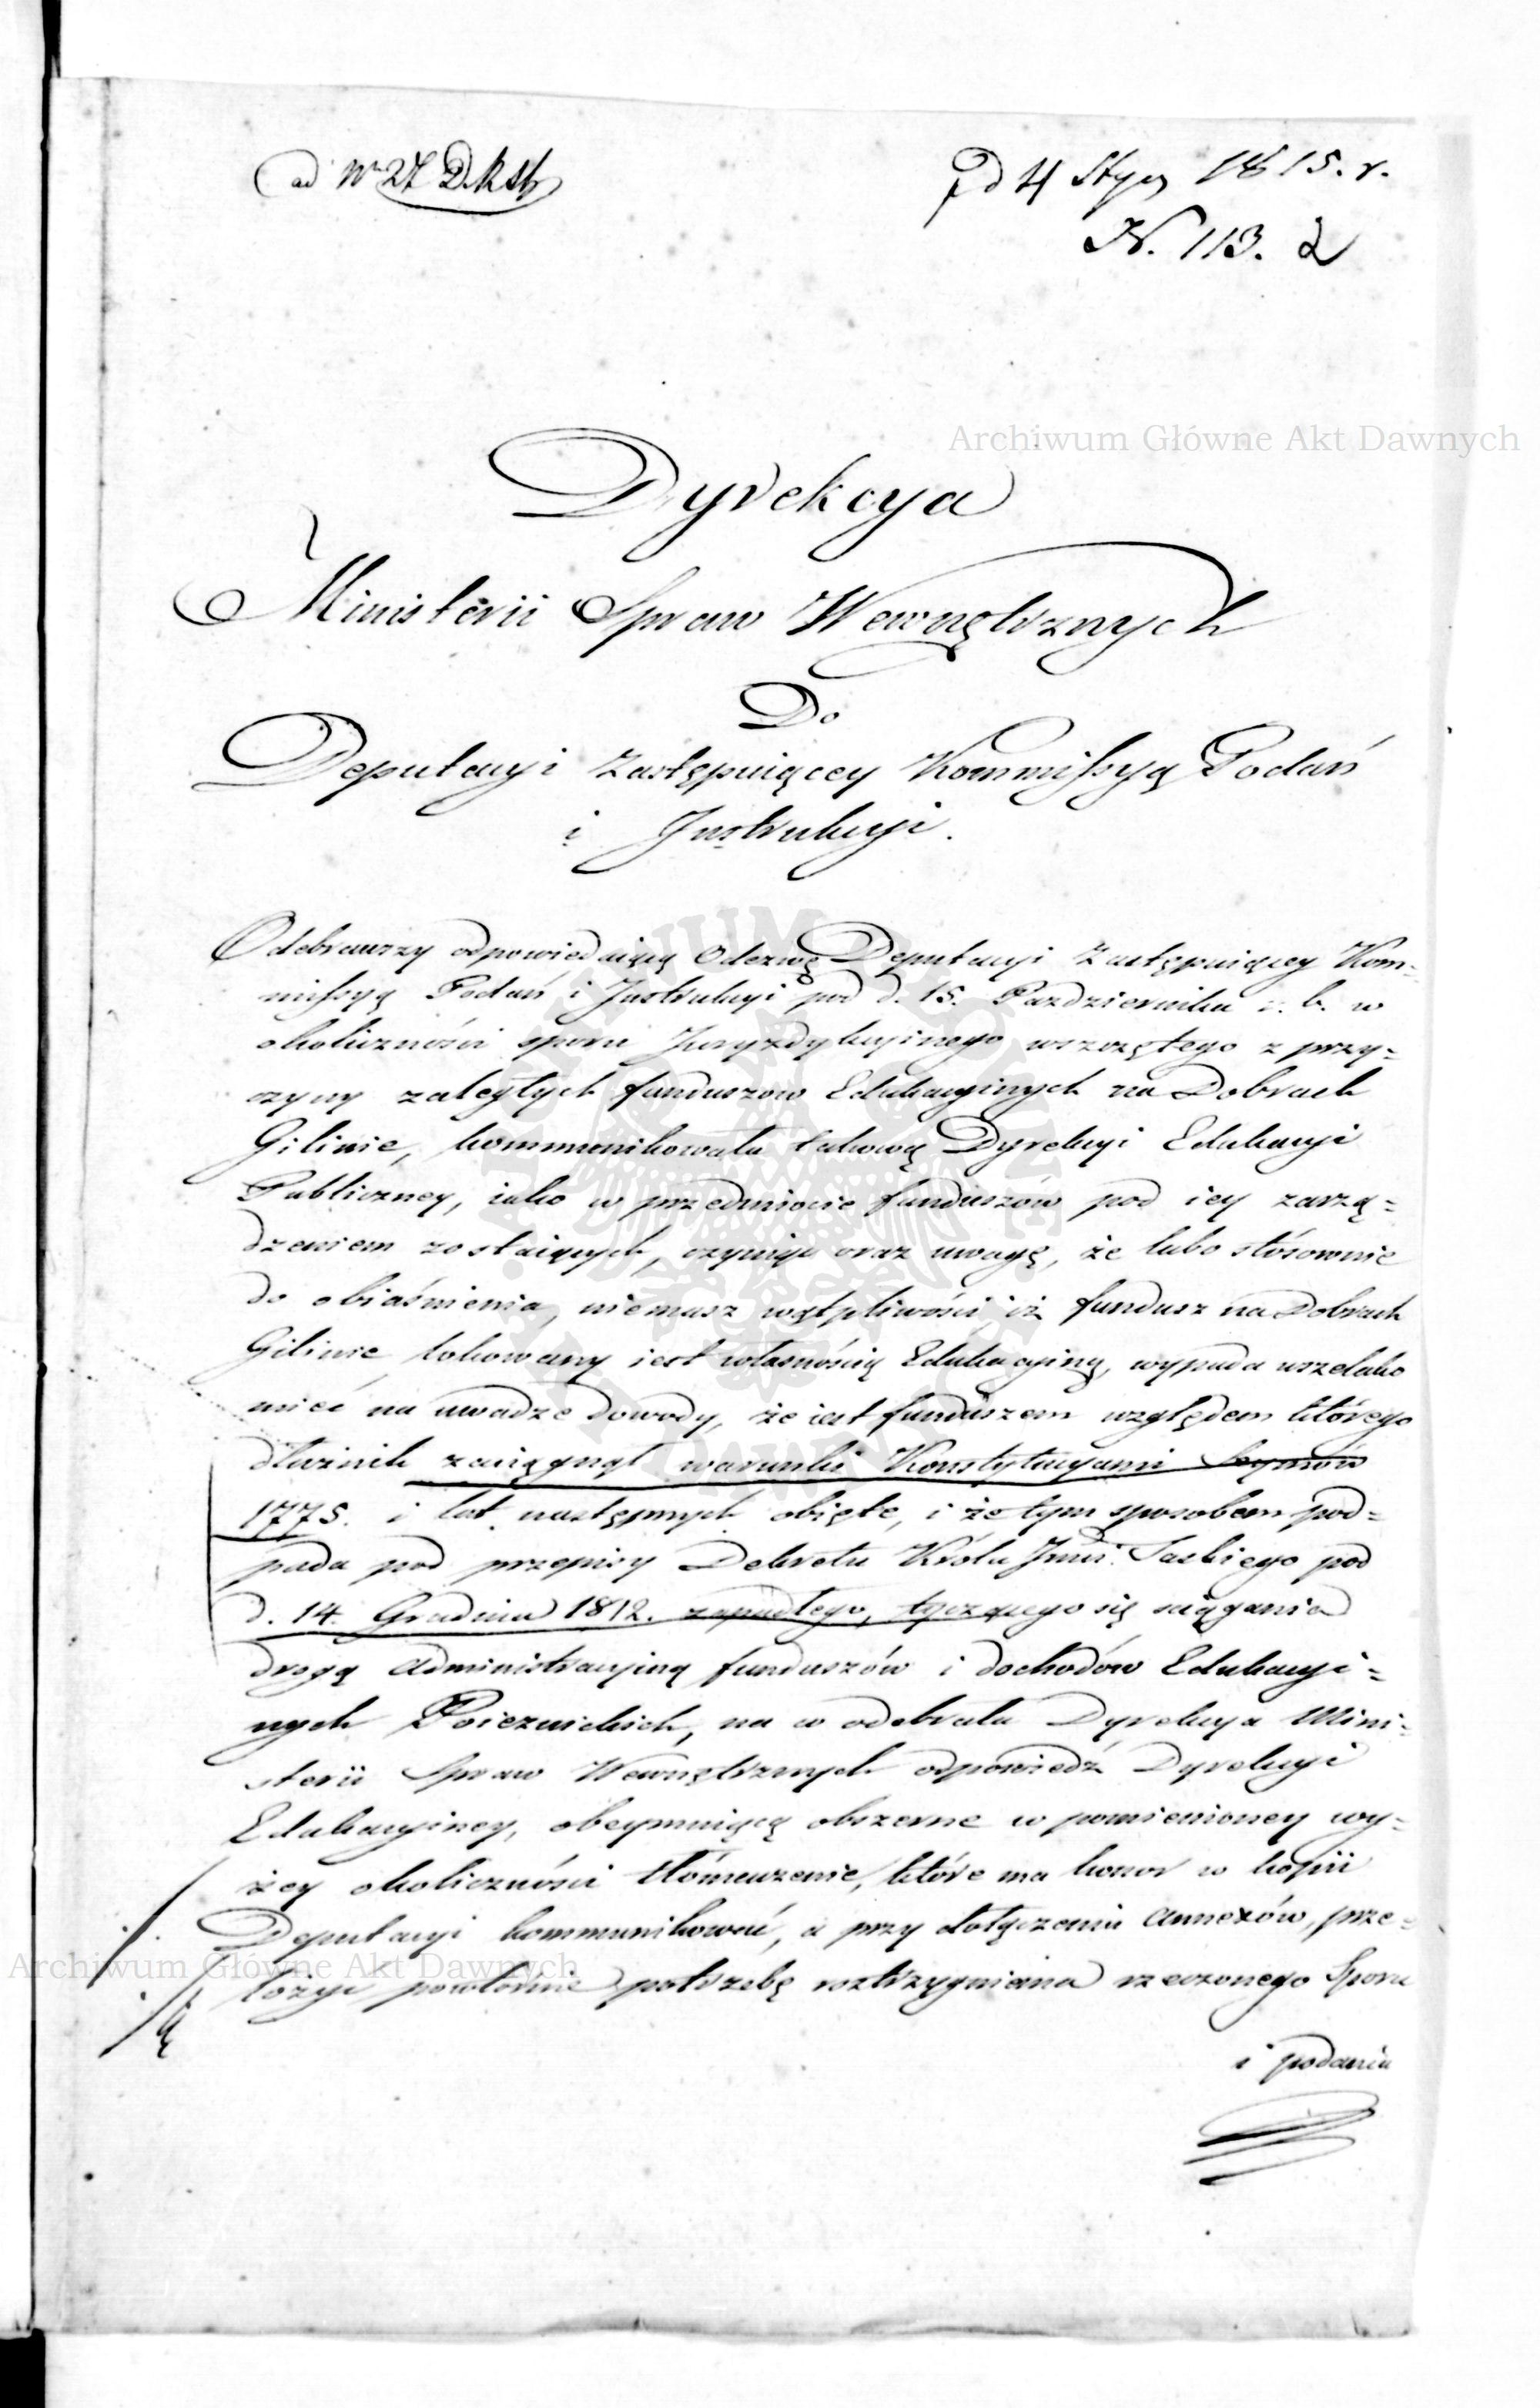 ad Nr 27 D.R.St.
d 4 Stycz 1815. r.
N. 113. 2
Archiwum Główne Akt Dawnych
Dyrekcya
Ministerii Spraw Wewnętrznych
Do
Deputacyi Zastępuiącey Kommissyą Podań
i Instrukcyi.
Odebrawszy odpowiedaiącą Odezwę Deputacyi Zastępuiącey Kom=
missyą Podań i Instrukcyi pod d. 15. Pazdziernika r. b. w
okoliczności sporu Juryzdykcyinego wszczętego z przy=
czyny zaległych funduszow Edukacyinych na Dobrach
Gilinie, kommunikowała takową Dyrekcyi Edukacyi
Publiczney, iako w przedmiocie funduszów pod iey zarzą=
dzeniem zostaiących, czyniąc oraz uwagę, że lubo stósownie
do obiaśnienia, niemasz wątpliwości iż fundusz na Dobrach
Gilinie lokowany iest własnością Edukacyiną, wypada wszelako
mieć na uwadze dowody, że iest funduszem względem którego
dłużnik zaciągnął warunki Konstytucyami Seymów
1775. i lat następnych obięte, i że tym sposobem pod=
pada pod przepisy Dekretu Króla Jmci Saskiego pod
d. 14. Grudnia 1812. zapadłego, tyczącego się ściągania
drogą Administracyiną funduszów i dochodów Edukacyi=
nych Poiezuickich, na co odebrała Dyrekcya Mini=
sterii Spraw Wewnętrznych odpowiedź Dyrekcyi
Edukacyiney, obeymuiącą obszerne w pomienioney wy=
żey okoliczności tłómaczenie, które ma honor w kopii
Deputacyi kommunikować, a przy dołączeniu Annexów, prze=
Archiwum Główne Akt Dawnych
łożyć powtórnie potrzebę roztrzygnienia rzeczonego Sporu
i podania